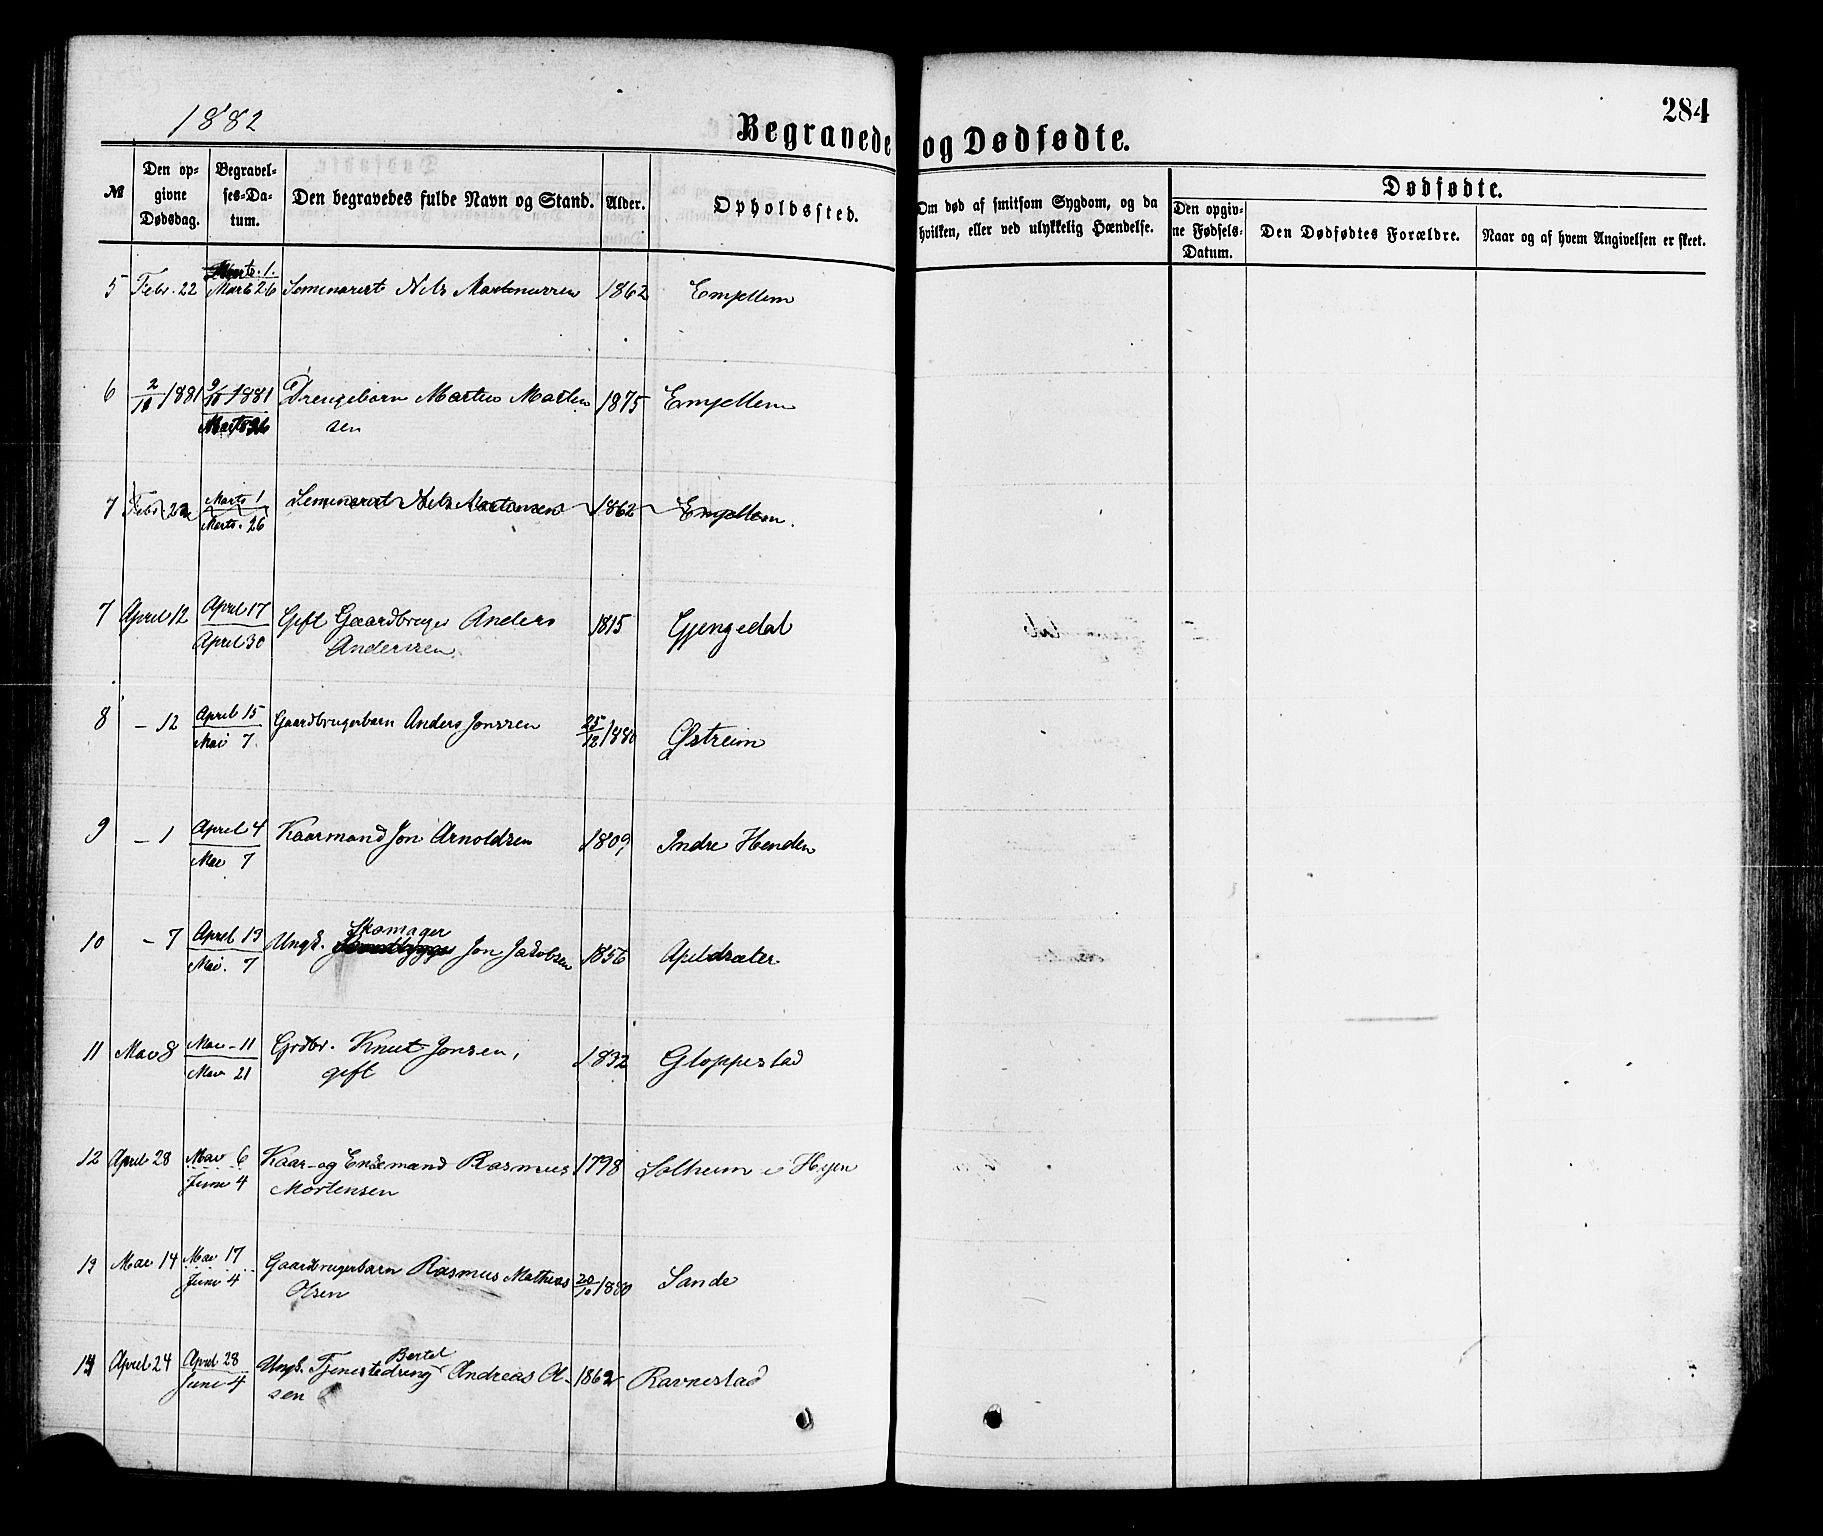 1882
Begravede og Dødfødte.
284
№
Den opgivne Dødsdag.
Begravelses-Datum.
Den begravedes fulde Navn og Stand.
Alder.
Opholdssted.
Om død af smitsom Sygdom, og da hvilken, eller ved ulykkelig Hændelse.
Dødfødte.
Den opgivne Fødsels-Datum.
Den Dødfødtes Forældre.
Naar og af hvem Angivelsen er skeet.
Marts. 1.
5 Febr. 22 Marts 26 Seminarist Nils Martenussen 1862 Empellem
6 2/10 1881 9/10 1881 Drengebarn Marten Marten 1875 Empellem
Marts 26 sen
7 Febr 22 Marts 1 Seminarist Nils Martenussen 1862 Empellem.
Marts. 26
7 April 12 April 17 Gift Gaardbruger Anders 1815 Gjengedal
April 30 Anderssen
8 – 12 April 15 Gaardbrugerbarn Anders Jonssen 25/12 1880 Østreim
Mai 7.
9 – 1 April 4 Kaarmand Jon Arnoldsen 1809 Indre Henden
Mai 7
Skomager
10 – 7 April 13 Ungk. Jon Jakobsen 1856 Apeldsæter
Mai. 7
11 Mai 8 Mai – 11 Grdbr. Knut Jonsen, 1832 Gloppestad
Mai 21 gift
12 April 28 Mai 6 Kaar- og Enkemand Rasmus 1798 Solheim i Hyen
Juni 4 Mortensen
13 Mai 14 Mai 17 Gaardbrugerbarn Rasmus Mathias 20/10 1880 Sande
Juni 4 Olsen
Bertel
14 April 24 April 28 Ungk. Tjenestedreng Andreas Ol- 1862 Ravnestad
Juni 4 sen